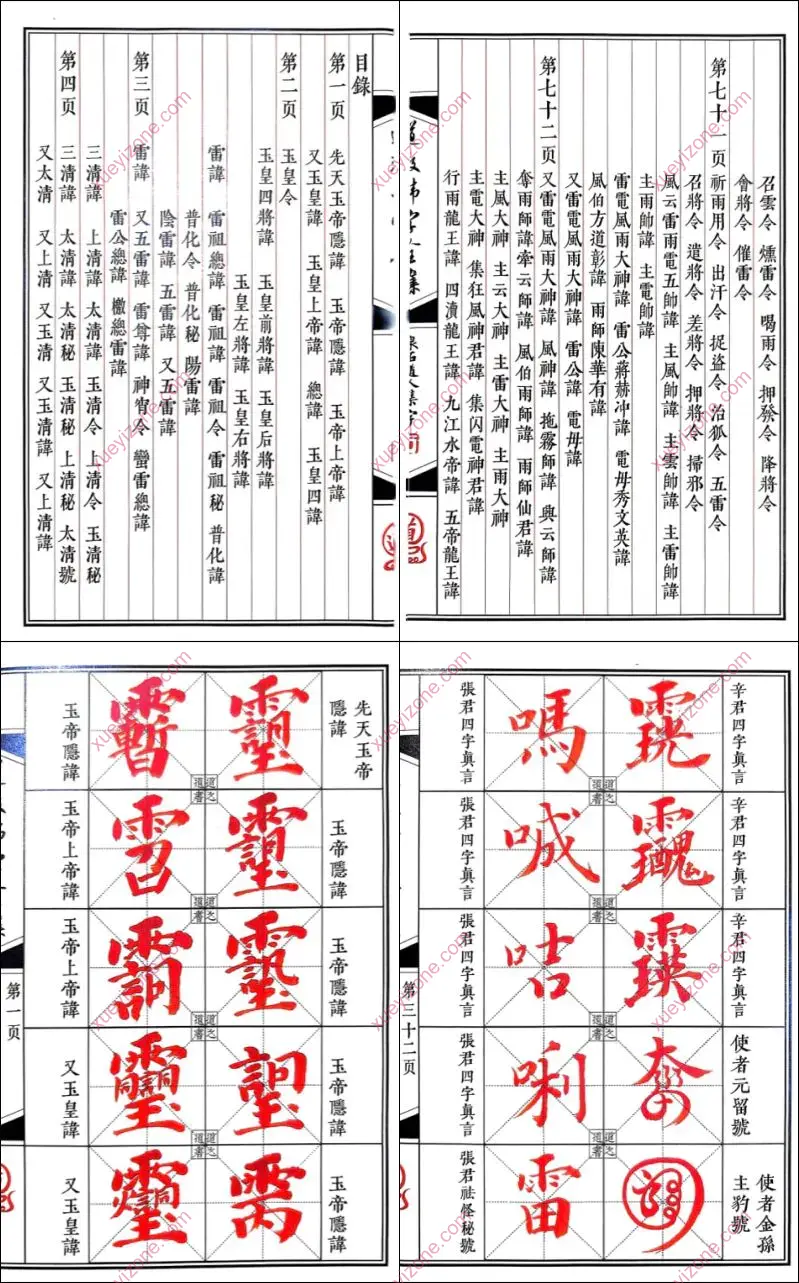 目錄
第一页 先天玉帝隱諱 玉帝隱諱 玉帝上帝諱
又玉皇諱 玉皇上帝諱 總諱 玉皇四諱
第二页 玉皇令
玉皇四將諱 玉皇前將諱 玉皇后將諱
玉皇左將諱 玉皇右將諱
雷諱 雷祖總諱 雷祖諱 雷祖令 雷祖秘 普化諱
普化令 普化秘 陽雷諱
陰雷諱 五雷諱 又五雷諱
第三页 雷諱 又五雷諱 雷尊諱 神霄令 蠻雷總諱
雷公總諱 檄總雷諱
三清諱 上清諱 太清諱 玉清令 上清令 玉清秘
第四页 三清諱 太清諱 太清秘 玉清秘 上清秘 太清號
又太清 又上清 又玉清 又玉清諱 又上清諱
召雲令 燻雷令 喝雨令 押發令 降將令
會將令 催雷令
第七十一页 祈雨用令 出汗令 捉盜令 治狐令 五雷令
召將令 遣將令 差將令 押將令 掃邪令
風云雷雨電五帥諱 主風帥諱 主雲帥諱 主雷帥諱
主雨帥諱 主電帥諱
雷電風雨大神諱 雷公蔣赫冲諱 電毋秀文英諱
風伯方道彰諱 雨師陳華有諱
又雷電風雨大神諱 雷公諱 電毋諱
第七十二页 又雷電風雨大神諱 風神諱 拖霧師諱 與云師諱
奪雨師諱 牽云師諱 風伯雨師諱 雨師仙君諱
主風大神 主云大神 主雷大神 主雨大神
主電大神 集狂風神君諱 集闪電神君諱
行雨龍王諱 四瀆龍王諱 九江水帝諱 五帝龍王諱
先天玉帝
隱諱
玉帝隱諱
玉帝隱諱
玉帝隱諱
玉帝隱諱
玉帝隱諱
玉帝上帝諱
玉帝上帝諱
又玉皇諱
又玉皇諱
第一页
辛君四字真言
辛君四字真言
辛君四字真言
使者元留號
使者金孫
主豹號
嗎
喊
咭
唎
雷
張君四字真言
張君四字真言
張君四字真言
張君四字真言
張君祛怪秘號
第三十二页
xueyizone.com